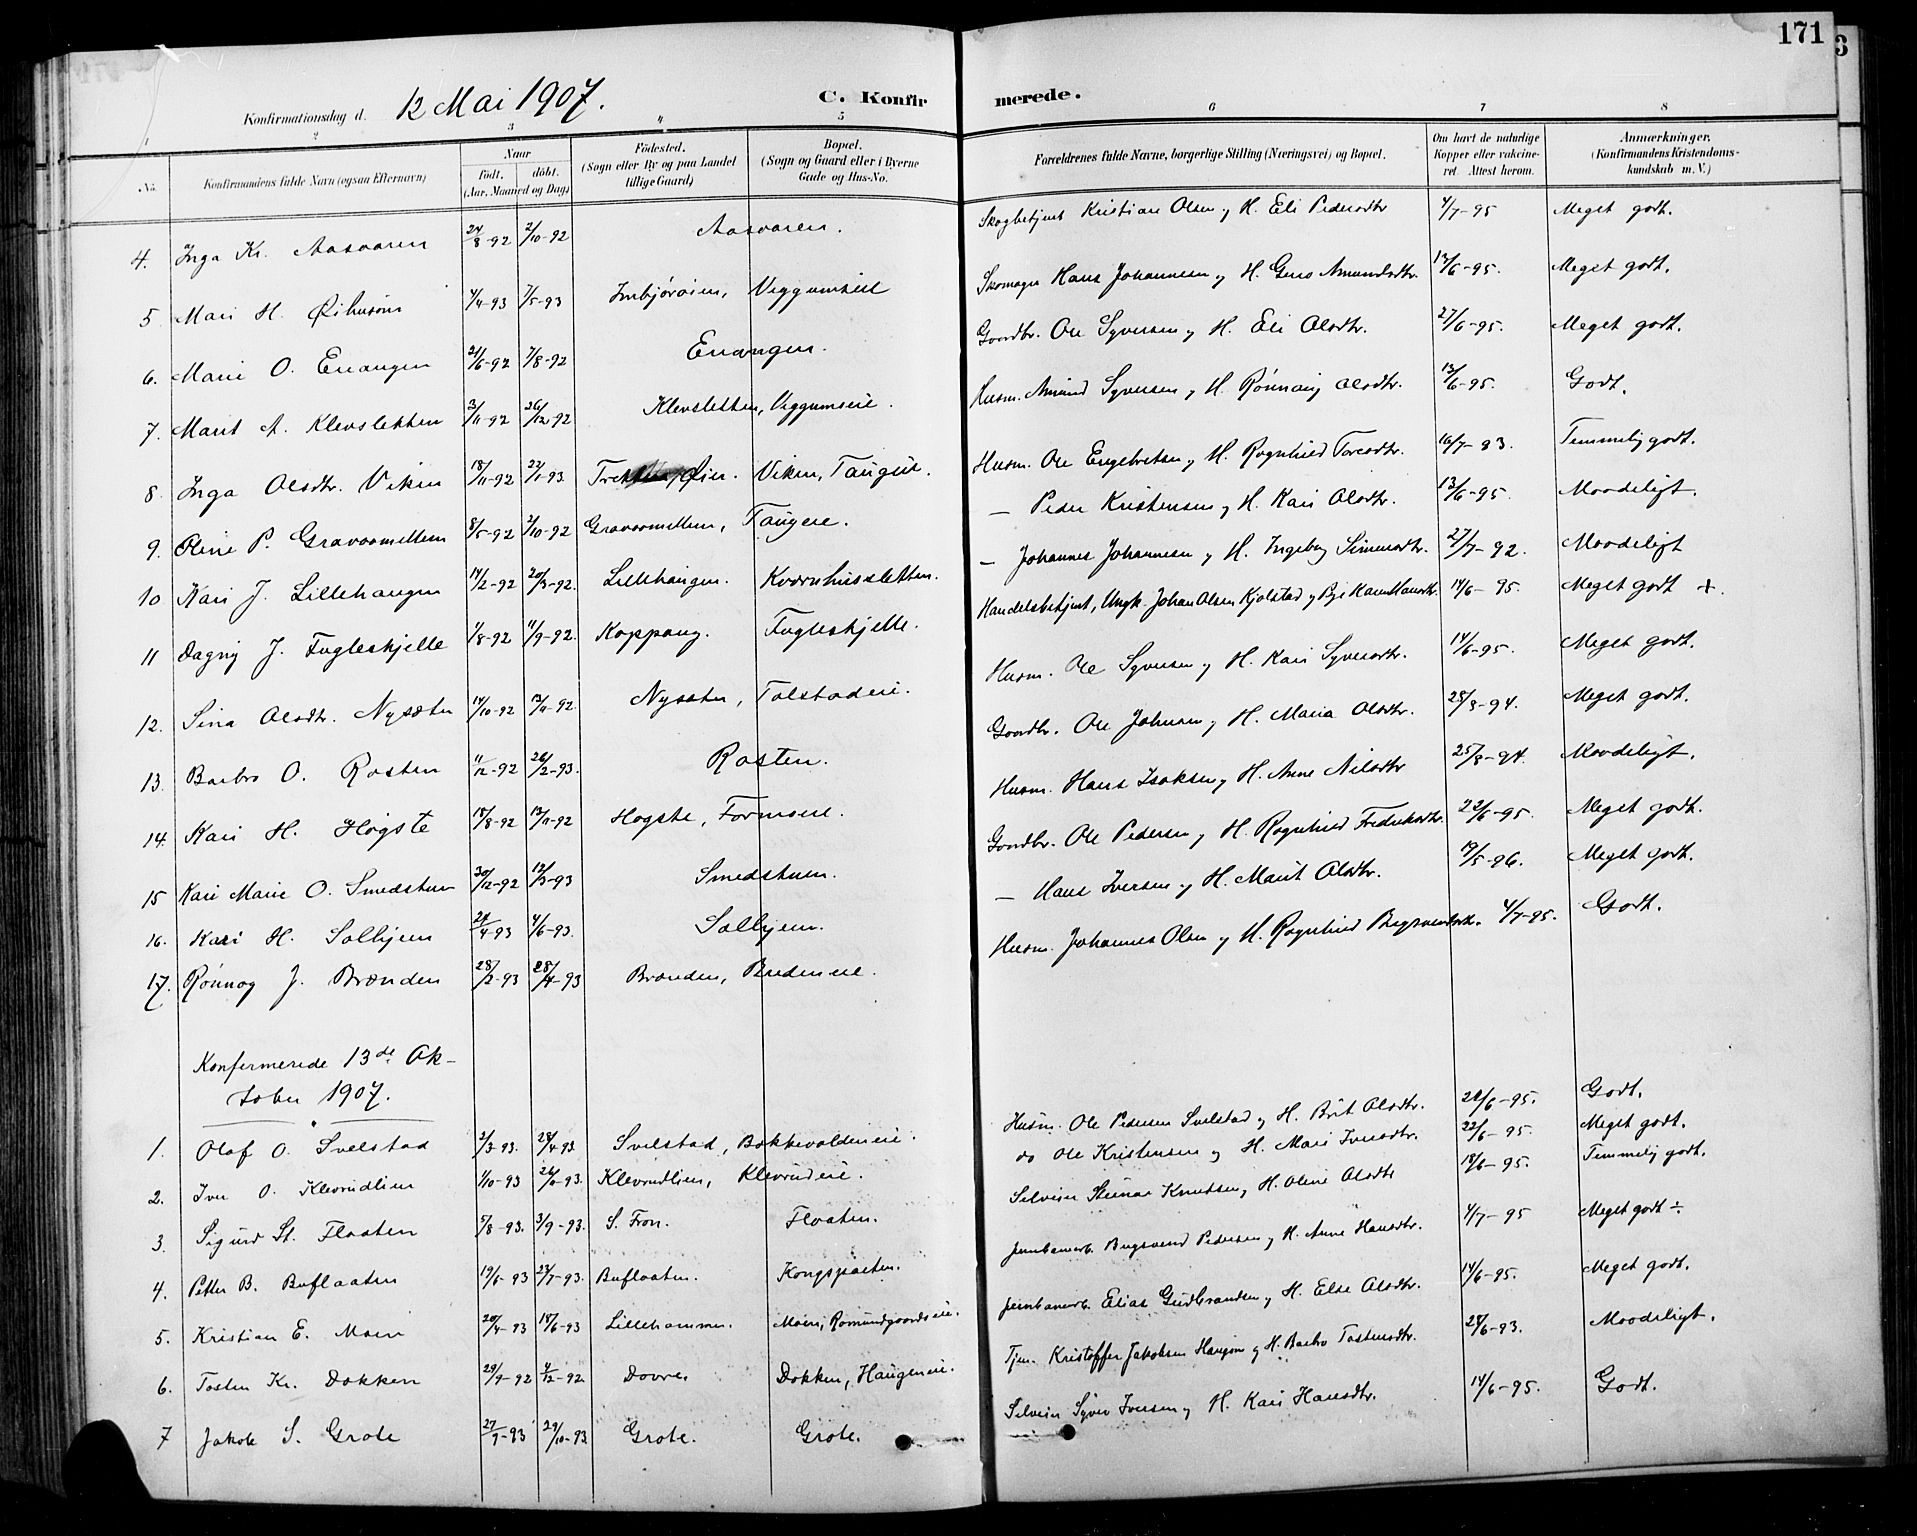 171
3
Konfirmationsdag d. 12 Mai 1907. C. Konfirmerede.
1 2 3 4 5 6 7 8
No. Konfirmandens fulde Navn (ogsaa Efternavn) Naar födt. döbt. (Aar, Maaned og Dag) Födested. (Sogn eller By og paa Landet tillige Gaard) Bopæl. (Sogn og Gaard eller i Byerne Gade og Hus-No. Forældrenes fulde Navne, borgerlige Stilling (Næringsvei) og Bopæl. Om havt de naturlige Kopper eller vakcineret. Attest herom. Anmærkninger. (Konfirmandens Kristendomskundskab m. V.)
4. Inga Kr. Aasvaren 24/8-92 2/10-92 Aasvaren. Skogbetjent Kristian Olsen og H. Eli Pedersdtr 4/7-95 Meget godt.
5. Mari H. 4/4-93 7/5-93 Veggumseie Skomager Hans Johannesen og H. Guro Amundsdtr. 14/6-95. Meget godt.
6. Marie O. Enangen 21/6-92 7/8-92 Enangen. Gaardbr. Ole Syversen og H. Eli Olsdtr. 27/6-95. Meget godt.
7. Marit A. Klevsletten 3/11-92 26/12-92 Klevsletten, Veggumseie. Husm. Amund Syversen og H. Rønnaug Olsdtr. 13/6-95. Godt.
8. Inga Olsdtr. Viken 18/11-92 22/1-93 Øier. Viken, Taugeie. Husm. Ole Engebretsen og H. Ragnhild Toresdtr. 16/7-93. Temmelig godt.
9. Oline P. Gravaamellem 8/5-92 2/10-92 Gravaamellem, Taugeie. — Peder Kristensen og H. Kari Olsdtr. 13/6-95. Maadeligt.
10 Kari J. Lillehaugen 14/2-92 20/3-92. Lillehaugen. Kvernhussletten. — Johannes Johannesen og H. Ingebor Simensdtr. 27/7-92. Maadeligt
11 Dagny J. Fugleskjelle 1/8-92 11/9-92. Koppang. Fugleskjelle. Handelsbetjent, Ungk. Johan Olsen Kjølstad og Pige Karen Hansdtr. 14/6-95. Meget godt +.
12. Sina Olsdtr. Nysæter 14/10-92 13/11-92. Nysæter, Tolstadeie. Husm. Ole Syversen og H. Kari Syversdtr. 14/6-95. Meget godt.
13. Barbro O. Rosten 11/12-92 26/2-93. Rosten. Gaardbr. Ole Johnsen og H. Maria Olsdtr. 28/8-94. Meget godt.
14. Kari H. Høgste 18/8-92 13/11-92 Høgste, Formoeie. Husm. Hans Isaksen og H. Anne Nilsdtr 25/8-94. Maadeligt.
15 Kari Marie O. Smedstuen 30/12-92 12/3-93 Smedstuen. Gaardbr. Ole Pedersen og H. Ragnhild Fredriksdtr. 22/6-95. Meget godt.
16. Kari H. Solhjem 24/4-93 4/6-93. Solhjem. — Hans Iversen og H. Marit Olsdtr. 19/5-96. Meget godt.
17. Rønnog J. Brænden 28/2-93 28/4-93 Brænden, Husm. Johannes Olsen og H. Ragnhild 4/7-95. Godt.
Konfermerede 13de Ok-
tober 1907.
1. Olaf O. Svelstad 2/3-93. 28/4-93 Svelstad, Husm. Ole Pedersen Svelstad og H. Brit Olsdtr. 21/6-95. Godt.
2. Iver O. Klevrudlien 1/10-93 Klevrudlien, Klevrudeie. do Ole Kristensen og H. Mari Iversdtr. 22/6-95. Meget godt.
3. Sigurd St. Flaaten 5/8-93. 3/9-93. S. Fron. Flaaten. Selveier Steinar Knutsen, H. Oline Olsdtr 18/6-95. Temmelig godt.
4. Petter B. Buflaaten 19/6-93 23/7-93. Buflaaten. Jernbanearb. Bugsvend Pedersen og H. Anne Hansdtr. 4/7-95 Meget godt ÷.
5. Kristian E. Moen 20/4-93 18/6-93 Lillehammer. Moen, Romundgaardseie. Jernbanearb. Elias Gudbrandsen og H. Else Olsdtr. 14/6-95. Meget godt.
6. Tosten Kr. Dokken 29/9-92 4/12-92 Dovre. Dokken, Haugeneie. Tjen. Kristoffer Jakobsen Haugen og H. Barbro Tostensdtr. 28/6-93. Maadeligt.
7 Jakob S. Grote 27/9-93 29/10-93 Grote. Grote. Selveier Syver Iversen og H. Kari Hansdtr. 14/6-95. Godt.